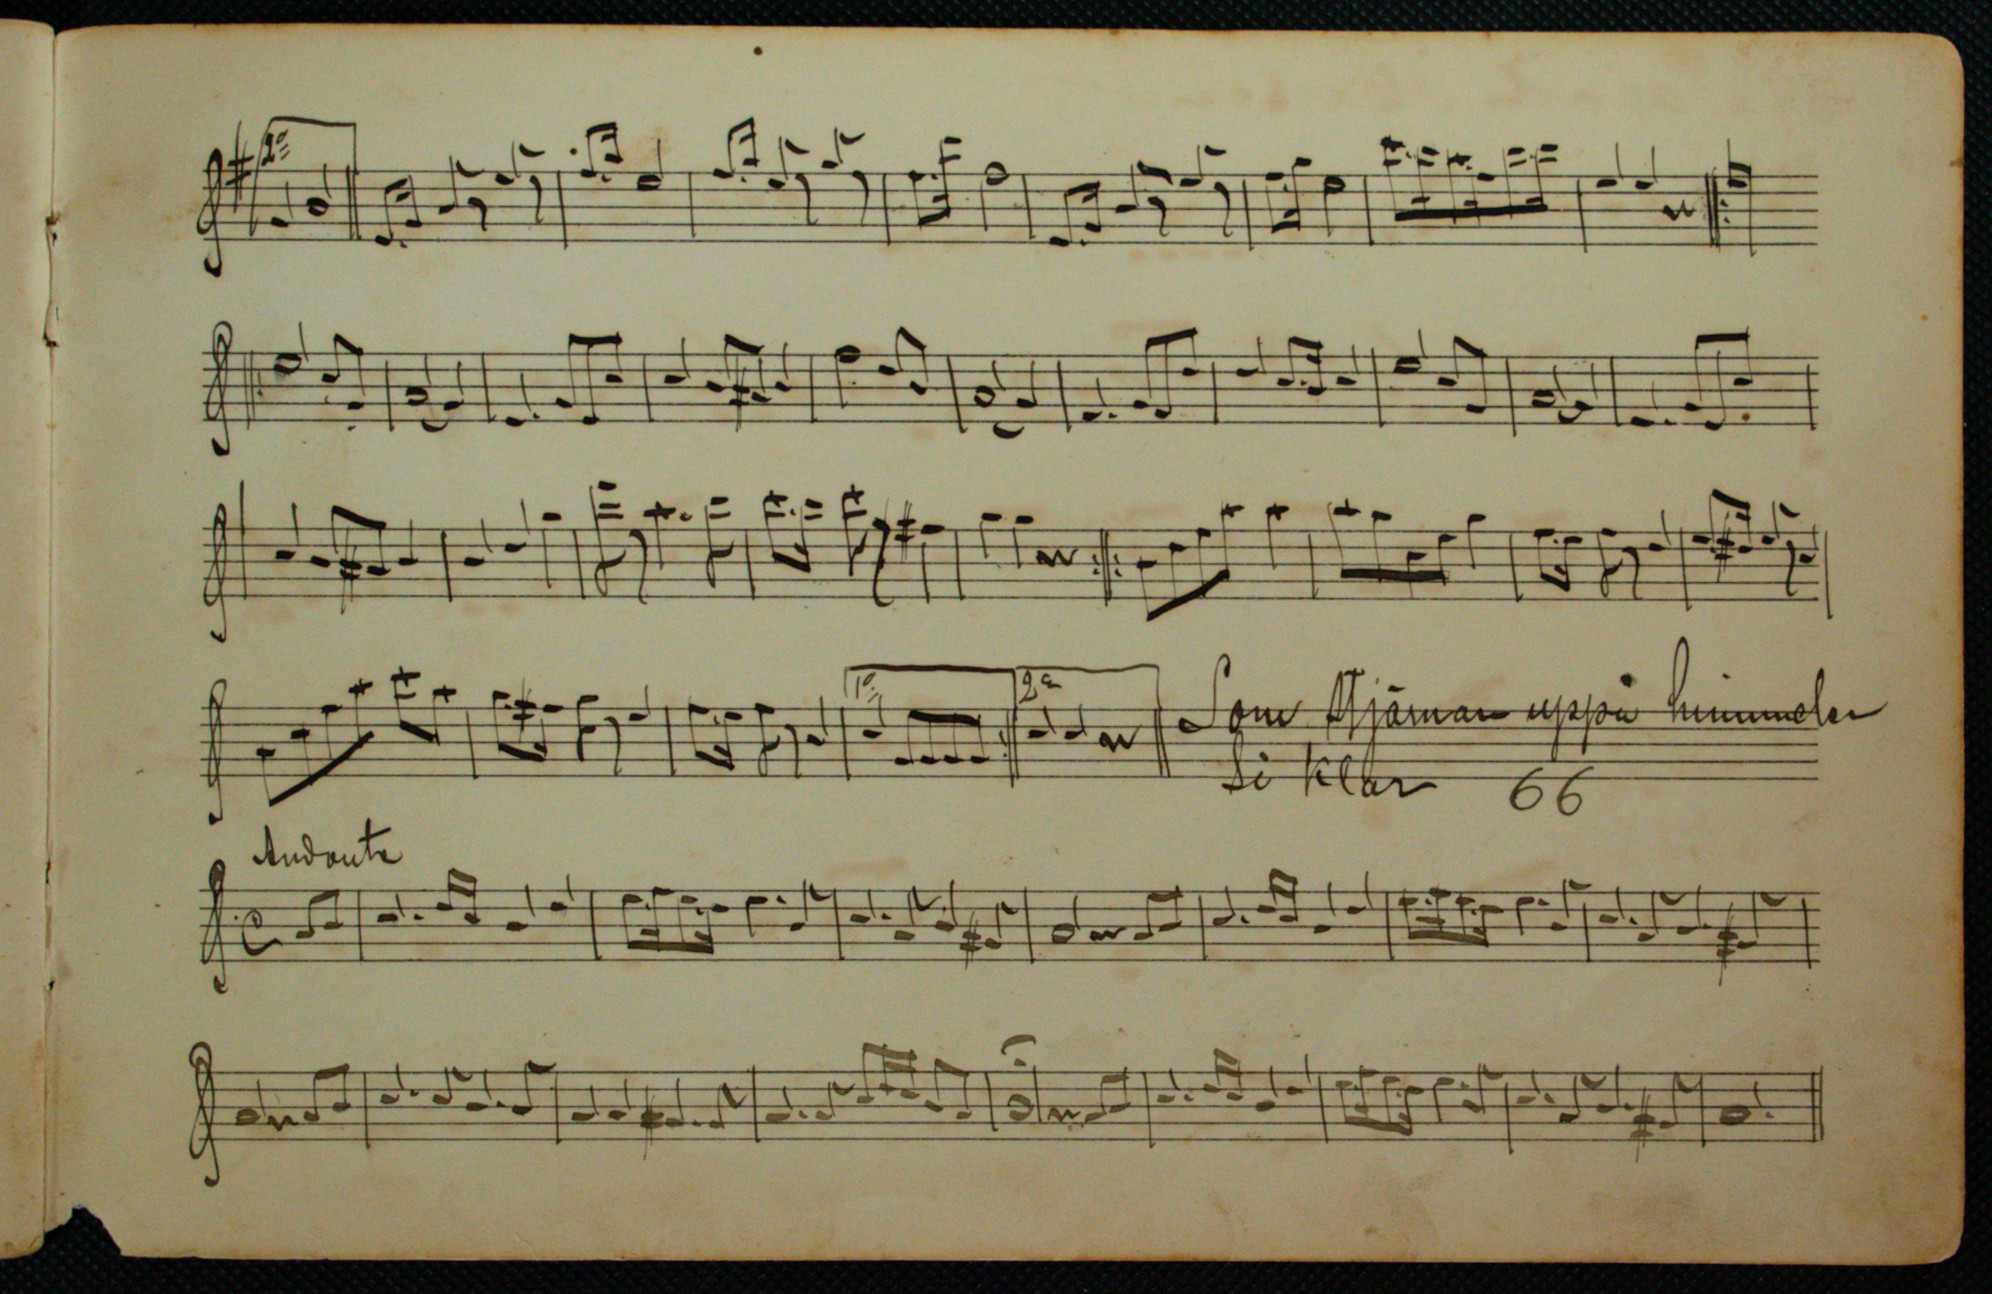 2a
1a 2a
Som stjärnan uppå himmelen
Så klar 66
Andante